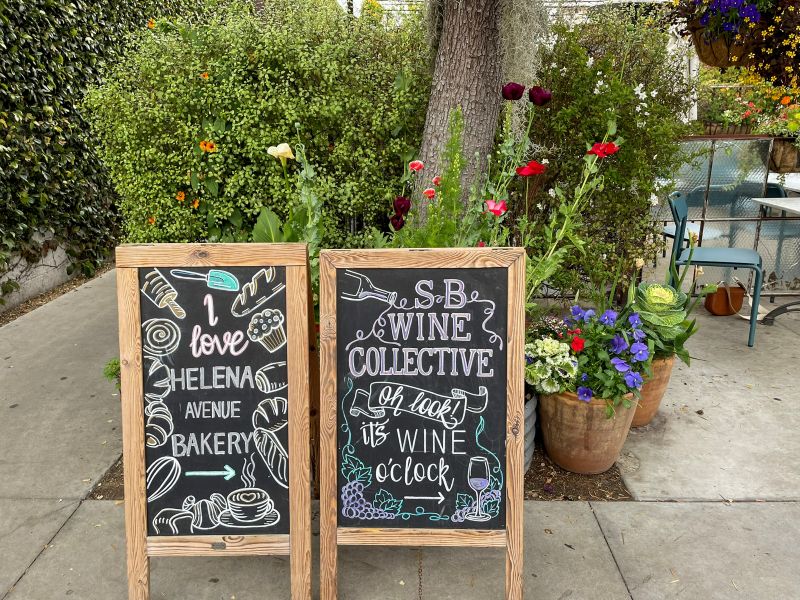 I
love
HELENA
AVENUE
BAKERY
S.B
WINE
COLLECTIVE
oh look!
it's WINE
o'clock